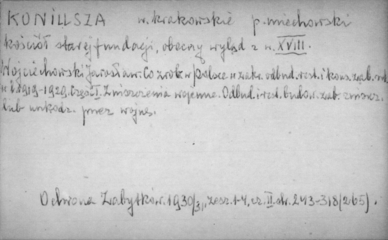 KONIUSZA w. krakowskie p. miechowski
kościół starej fundacji, obecny wygląd z w. XVIII.
Wojciechowski Jarosław: Co zrob. w Polsce w zakr. odbud. rest. i kons. zab. od
r. 1919-1929. Część I. Zniszczenia wojenne. Odbud. i rest. budow. zab. zniszcz.
lub uszkodz. przez wojnę.
Ochrona Zabytków. 1930/31, zesz. 1-4, cz. II. str. 243-318 (265).